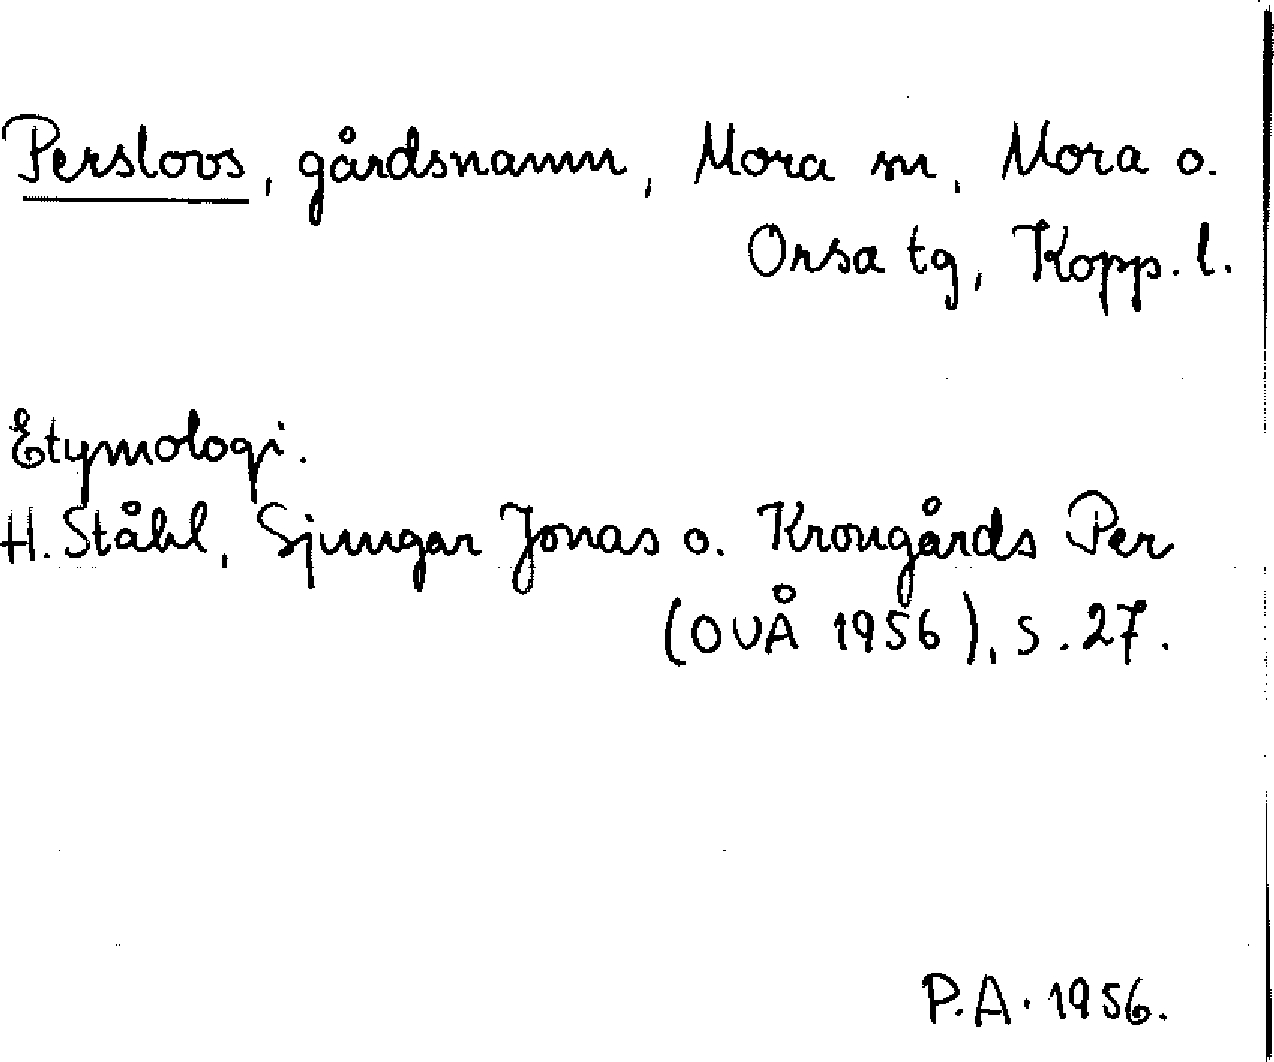 Perslovs, gårdsnamn, Mora sn, Mora o.
Orsa tg, Kopp. l.
Etymologi.
H. Ståhl, Sjungar Jonas o. Krongårds Per
(OUÅ 1956), s. 27.
P.A. 1956.